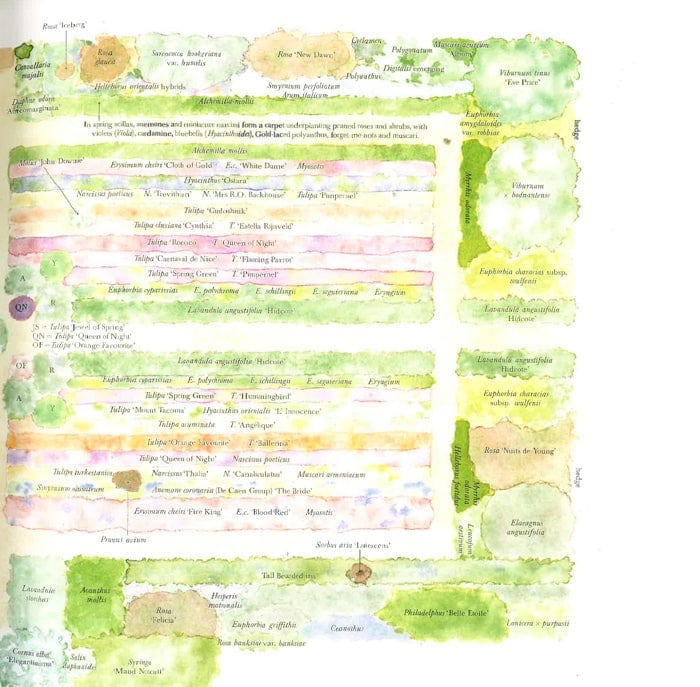 Rosa 'Iceberg'
Convallaria
majalis
Rosa
glauca
Sarcococca hookeriana
var. humilis
Rosa 'New Dawn'
Cyclamen
Polygonatum
Muscari azureum
'Album'
Digitalis emerging
Polyanthus
Viburnum tinus
'Eve Price'
Helleborus orientalis hybrids
Smyrnium perfoliatum
Arum italicum
Daphne odora
'Aureomarginata'
Alchemilla mollis
Euphorbia
amygdaloides
var. robbiae
hedge
In spring scillas, anemones and miniature narcissi form a carpet underplanting pruned roses and shrubs, with
violets (Viola), cardamine, bluebells (Hyacinthoides), Gold-laced polyanthus, forget-me-nots and muscari.
Alchemilla mollis
Malus 'John Downie'
Erysimum cheiri 'Cloth of Gold' E.c. 'White Dame' Myosotis
Hyacinthus 'Ostara'
Narcissus poeticus N. 'Trevithian' N. 'Mrs R.O. Backhouse' Tulipa 'Pimpernel'
Myrrhis odorata
Viburnum
× bodnantense
Tulipa 'Gudoshnik'
Tulipa clusiana 'Cynthia' T. 'Estella Rijnveld'
Tulipa 'Rococo' T. 'Queen of Night'
Tulipa 'Carnaval de Nice' T. 'Flaming Parrot'
Tulipa 'Spring Green' T. 'Pimpernel'
Y
A
Euphorbia characias subsp.
wulfenii
Euphorbia cyparissias E. polychroma E. schillingii E. seguieriana Eryngium
QN
R
Lavandula angustifolia 'Hidcote'
Lavandula angustifolia
'Hidcote'
JS = Tulipa 'Jewel of Spring'
QN = Tulipa 'Queen of Night'
OF = Tulipa 'Orange Favourite'
OF
R
Lavandula angustifolia 'Hidcote'
Lavandula angustifolia
'Hidcote'
Euphorbia cyparissias E. polychroma E. schillingii E. seguieriana Eryngium
A
Y
Tulipa 'Spring Green' T. 'Hummingbird'
Euphorbia characias
subsp. wulfenii
Tulipa 'Mount Tacoma' Hyacinthus orientalis 'L' Innocence'
Tulipa acuminata T. 'Angélique'
Tulipa 'Orange Favourite' T. 'Ballerina'
Tulipa 'Queen of Night' Narcissus poeticus
Rosa 'Nuits de Young'
Tulipa turkestanica Narcissus 'Thalia' N. 'Canaliculatus' Muscari armeniacum
Smyrnium olusatrum
Anemone coronaria (De Caen Group) 'The Bride'
Helleborus foetidus
Myrrhis
odorata
hedge
Erysimum cheiri 'Fire King' E.c. 'Blood Red' Myosotis
Elaeagnus
angustifolia
Leucojum
aestivum
Prunus avium
Sorbus aria 'Lutescens'
Tall Bearded iris
Lavandula
stoechas
Acanthus
mollis
Rosa
'Felicia'
Hesperis
matronalis
Philadelphus 'Belle Etoile'
Lonicera × purpusii
Euphorbia griffithii
Ceanothus
Rosa banksiae var. banksiae
Cornus alba
'Elegantissima'
Salix
daphnoides
Syringa
'Maud Notcutt'